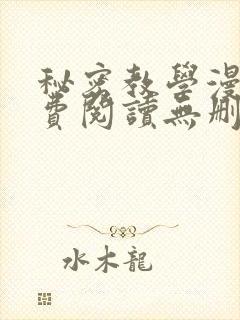 秘密教學漫
費閱讀無刪
水木龍